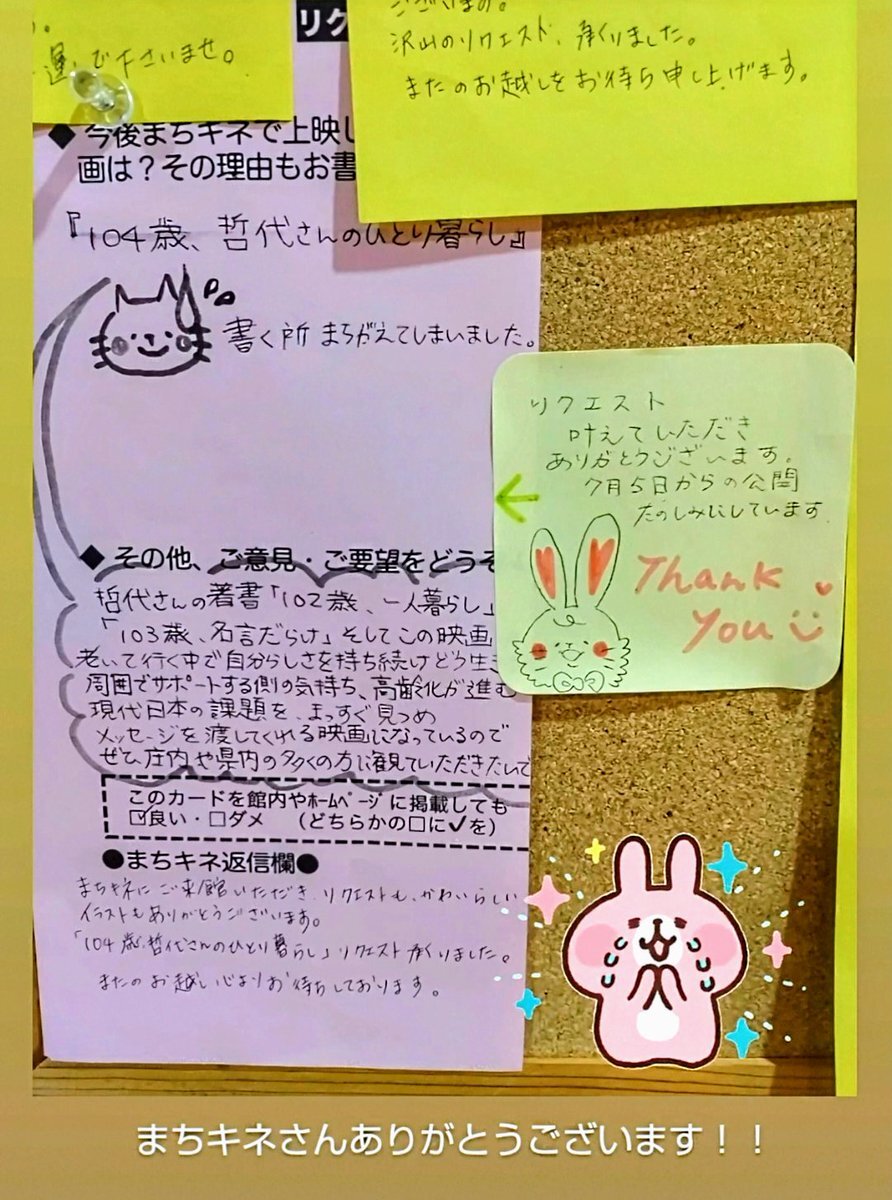 運んで下さいませ。
リク
ございます。
沢山のリクエスト、承りました。
またのお越しをお待ち申し上げます。
◆ 今後まちキネで上映し
画は？その理由もお書
『104歳、哲代さんのひとり暮らし』
書く所 まちがえてしまいました。
リクエスト
叶えていただき
ありがとうございます。
7月5日からの公開
たのしみにしています
Thank
You
◆ その他、ご意見・ご要望をどうぞ
哲代さんの著書「102歳、一人暮らし」
「103歳、名言だらけ」そしてこの映画
老いて行く中で自分らしさを持ち続けどう生き
周囲でサポートする側の気持ち、高齢化が進む
現代日本の課題を、まっすぐ見つめ
メッセージを渡してくれる映画になっているので
ぜひ庄内や県内の多くの方に観ていただきたいで
このカードを館内やﾎｰﾑﾍﾟｰｼﾞに掲載しても
☑良い・□ダメ （どちらかの□に✓を）
●まちキネ返信欄●
まちキネにご来館いただき、リクエストも、かわいらしい
イラストもありがとうございます。
「104歳、哲代さんのひとり暮らし」リクエスト承りました。
またのお越し心よりお待ちしております。
まちキネさんありがとうございます！！